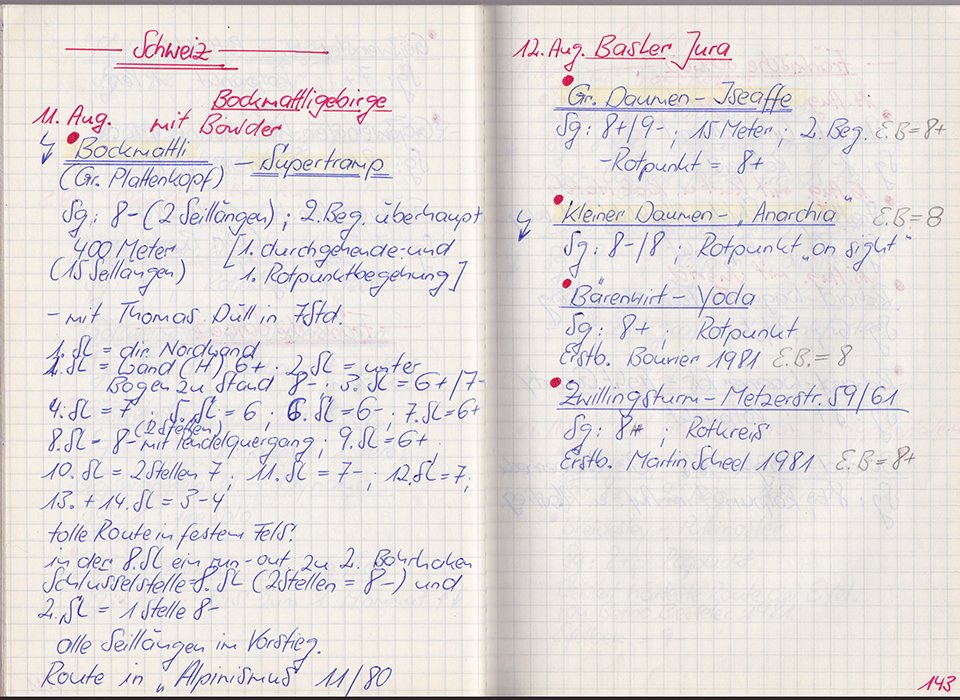 Schweiz
Bockmattligebirge
11. Aug. mit Bowlder
Bockmattli - Supertramp
(Gr. Plattenkopf)
Sg: 8- (2 Seillängen) ; 2. Beg. überhaupt
400 Meter [1. durchgehende- und
(15 Seillängen) 1. Rotpunktbegehung]
- mit Thomas Düll in 7 Std.
1. SL = dir. Nordwand
1. SL = Wand (H) 6+ ; 2. SL = unter
Bogen zu Stand 8- ; 3. SL = 6+/7-
4. SL = 7 ; 5. SL = 6 ; 6. SL = 6- ; 7. SL = 6+
(2 Stellen)
8. SL - 8- mit Pendelquergang ; 9. SL = 6+ ;
10. SL = 2 Stellen 7 ; 11. SL = 7- ; 12. SL = 7 ;
13. + 14. SL = 3-4
tolle Route in festem Fels.
in der 8. SL ein run-out zu 2. Bohrhaken
Schlüsselstelle = 8. SL (2 Stellen = 8-) und
2. SL = 1 Stelle 8-
alle Seillängen im Vorstieg.
Route in "Alpinismus" 11/80
12. Aug. Basler Jura
Gr. Daumen - Iseaffe
Sg: 8+/9- ; 15 Meter ; 2. Beg. E.B = 8+
- Rotpunkt = 8+
Kleiner Daumen - "Anarchia" E.B = 8
Sg: 8-/8 ; Rotpunkt "on sight"
Bärenwirt - Yoda
Sg: 8+ ; Rotpunkt
Erstb. Bouvier 1981 E.B. = 8
Zwillingsturm - Metzerstr. 59/61
Sg: 8+ ; Rotkreis
Erstb. Martin Scheel 1981 E.B = 8+
143